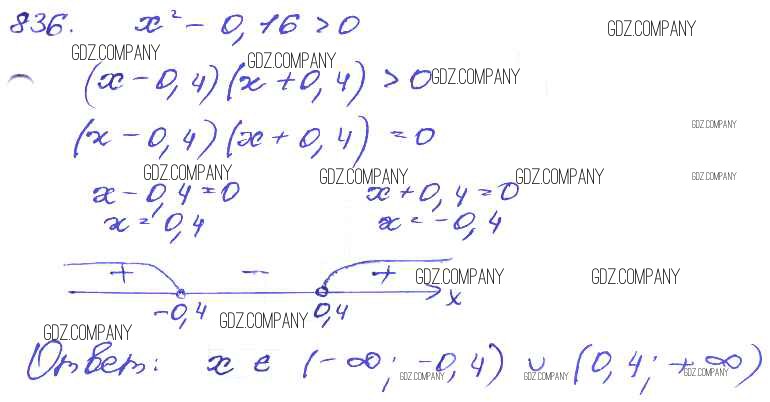 836. x² - 0,16 > 0
GDZ.COMPANY
GDZ.COMPANY GDZ.COMPANY
(x - 0,4)(x + 0,4) > 0 GDZ.COMPANY
(x - 0,4)(x + 0,4) = 0
GDZ.COMPANY
GDZ.COMPANY GDZ.COMPANY GDZ.COMPANY GDZ.COMPANY
x - 0,4 = 0 x + 0,4 = 0
x = 0,4 x = -0,4
+ - + GDZ.COMPANY GDZ.COMPANY
x
-0,4 GDZ.COMPANY 0,4
GDZ.COMPANY
Ответ: x ∈ (-∞; -0,4) ∪ (0,4; +∞)
GDZ.COMPANY GDZ.COMPANY GDZ.COMPANY